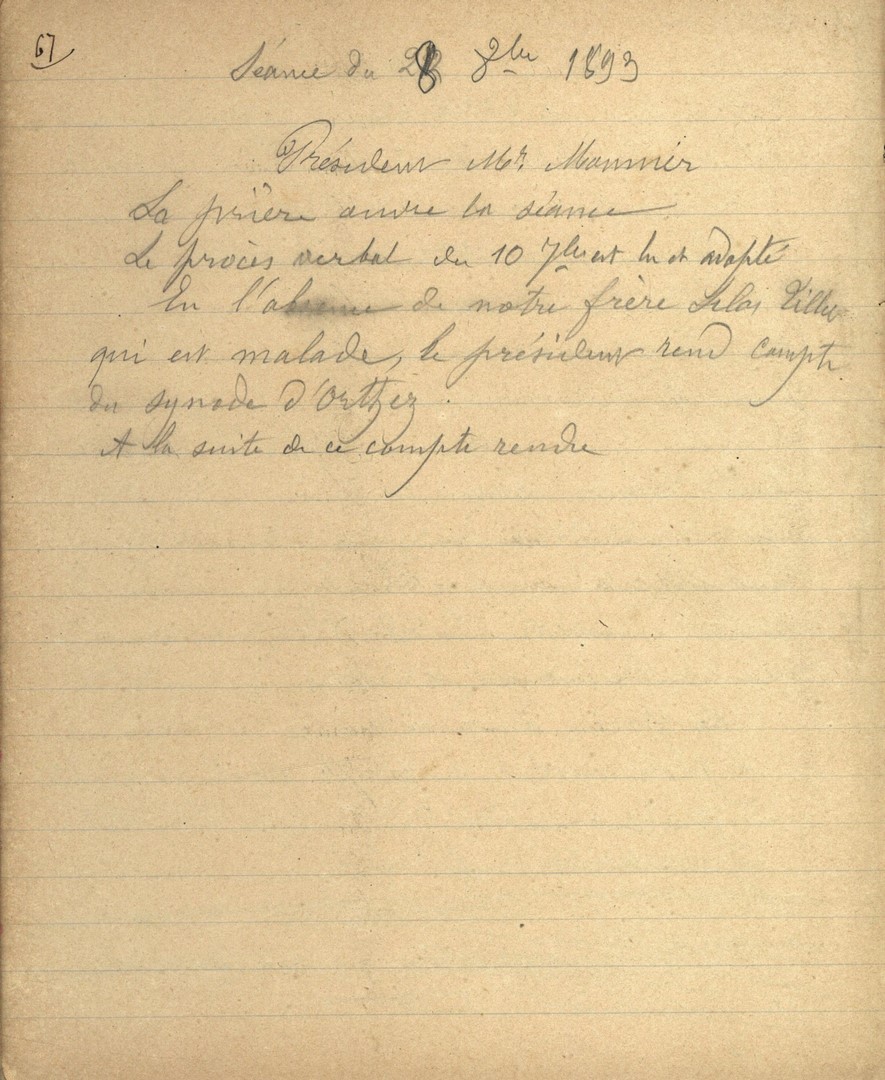 67
Séance du 28 8bre 1893
Président Mr. Monnier
La prière ouvre la séance
Le procès verbal du 10 7bre est lu et adopté
En l'absence de notre frère Silas
qui est malade, le président rend compte
du synode d'Orthez.
A la suite de ce compte rendre